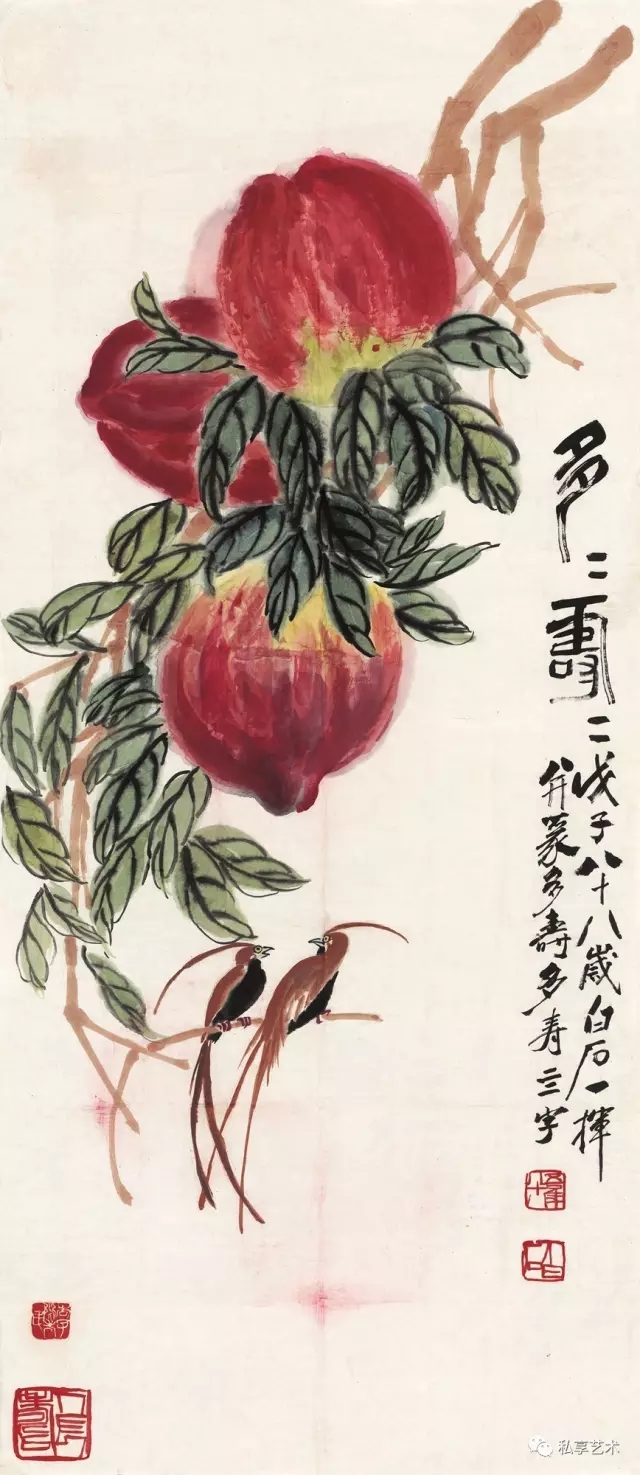 多二壽二
戊子八十八歲白石一揮
并篆多壽多寿亖字
白石
私享艺术